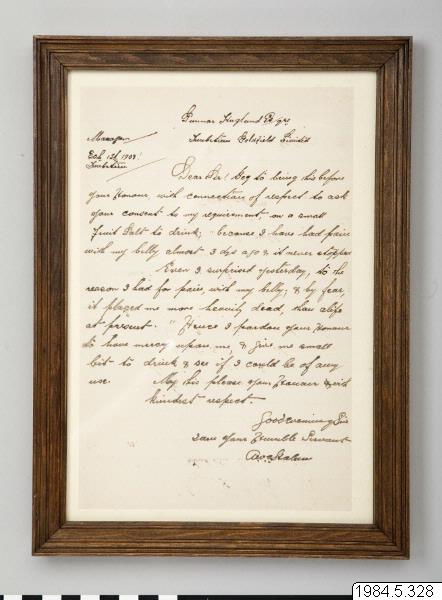 Gunnar
Manager
Oct 1st 1909
Goldfield Limited
Dear Sir! Beg to bring his before
your Honour, with connection of respect to ask
your consent to my requirement, on a small
Fruit Salt to drink; because I have had pain
with my belly almost 3 dys ago & it never stopped
Even I surprised yesterday, to the
reason I had for pain with my belly; & by fear,
it placed me more heavily dead, than alife
at present. " Hence I pardon your Honour
to have mercy upon me, & give me small
bit to drink & see if I could be of any
use. May this please your Honour & with
kindest respect.
Good evening Sir
I am your Humble Servant
1984.5.328